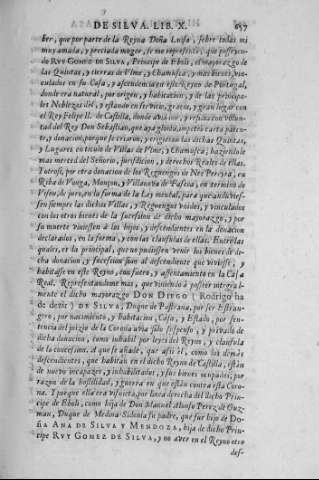 DE SILVA. LIB. X. 657
ber, que por parte de la Reyna Doña Luisa, sobre todas mi
muy amada, y preciada muger, se me representò, que posseyen-
do RVY GOMEZ DE SILVA, Principe de Eboli, el mayorazgo de
las Quintas, y tierras de Vlme, y Chamusca, y mas bienes, vin-
culados en su Casa, y ascendencia en este Reyno de Portugal,
donde era natural, por origen, y habitacion, y de las principa-
les Noblezas dèl, y estando en servicio, gracia, y gran lugar con
el Rey Felipe II. de Castilla, donde avia ido, y residia con volun-
tad del Rey Don Sebastian, que aya gloria, impetrò carta paten-
te, y donacion, porque se criaron, y erigieron las dichas Quintas,
y Lugares en titulo de Villas de Vlme, y Chamusca; haziendole
mas merced del Señorio, jurisdicion, y derechos Reales de ellas.
Iutrosi, por otra donacion de los Reguengos de Nes Pereyra, en
Riba de Vouga, Monçon, y Villanova de Fasena, en termino de
Viseo, de juro, en la forma de la Ley mental, para que anduvies-
sen siempre las dichas Villas, y Reguengos vnidos, y vinculados
con los otros bienes de la sucession de dicho mayorazgo, y por
su muerte viniessen à los hijos, y descendientes en la donacion
declarados, en la forma, y con las clausulas de ellas. Entre las
quales, es la principal, que no pudiessen venir los bienes de di-
cha donacion, y sucession sino al descendiente que viviesse, y
habitasse en este Reyno, con fuero, y assentamiento en la Casa
Real. Representandome mas, que viniendo à posseer integral-
mente el dicho mayorazgo DON DIEGO (Rodrigo ha
de dezir) DE SILVA, Duque de Pastrana, por ser Estran-
gero, por nacimiento, y habitacion, Casa, y Estado, por sen-
tencia del juizio de la Corona avia sido suspenso, y privado de
dicha donacion, como inhabil por leyes del Reyno, y clausula
de la concession. A que se añade, que assi èl, como los demàs
descendientes, que habitan en el dicho Reyno de Castilla, estàn
de nuevo incapazes, y inhabilitados, y sus bienes ocupados, por
razon de la hostilidad, y guerra en que estàn contra esta Coro-
na. Y porque ella era visnieta, por linea derecha del dicho Prin-
cipe de Eboli, como hija de Don Manuel Alonso Perez de Guz-
man, Duque de Medina Sidonia su padre, que fue hijo de Do-
ña ANA DE SILVA Y MENDOZA, hija de dicho Prin-
cipe RVY GOMEZ DE SILVA, y no aver en el Reyno otro
des-